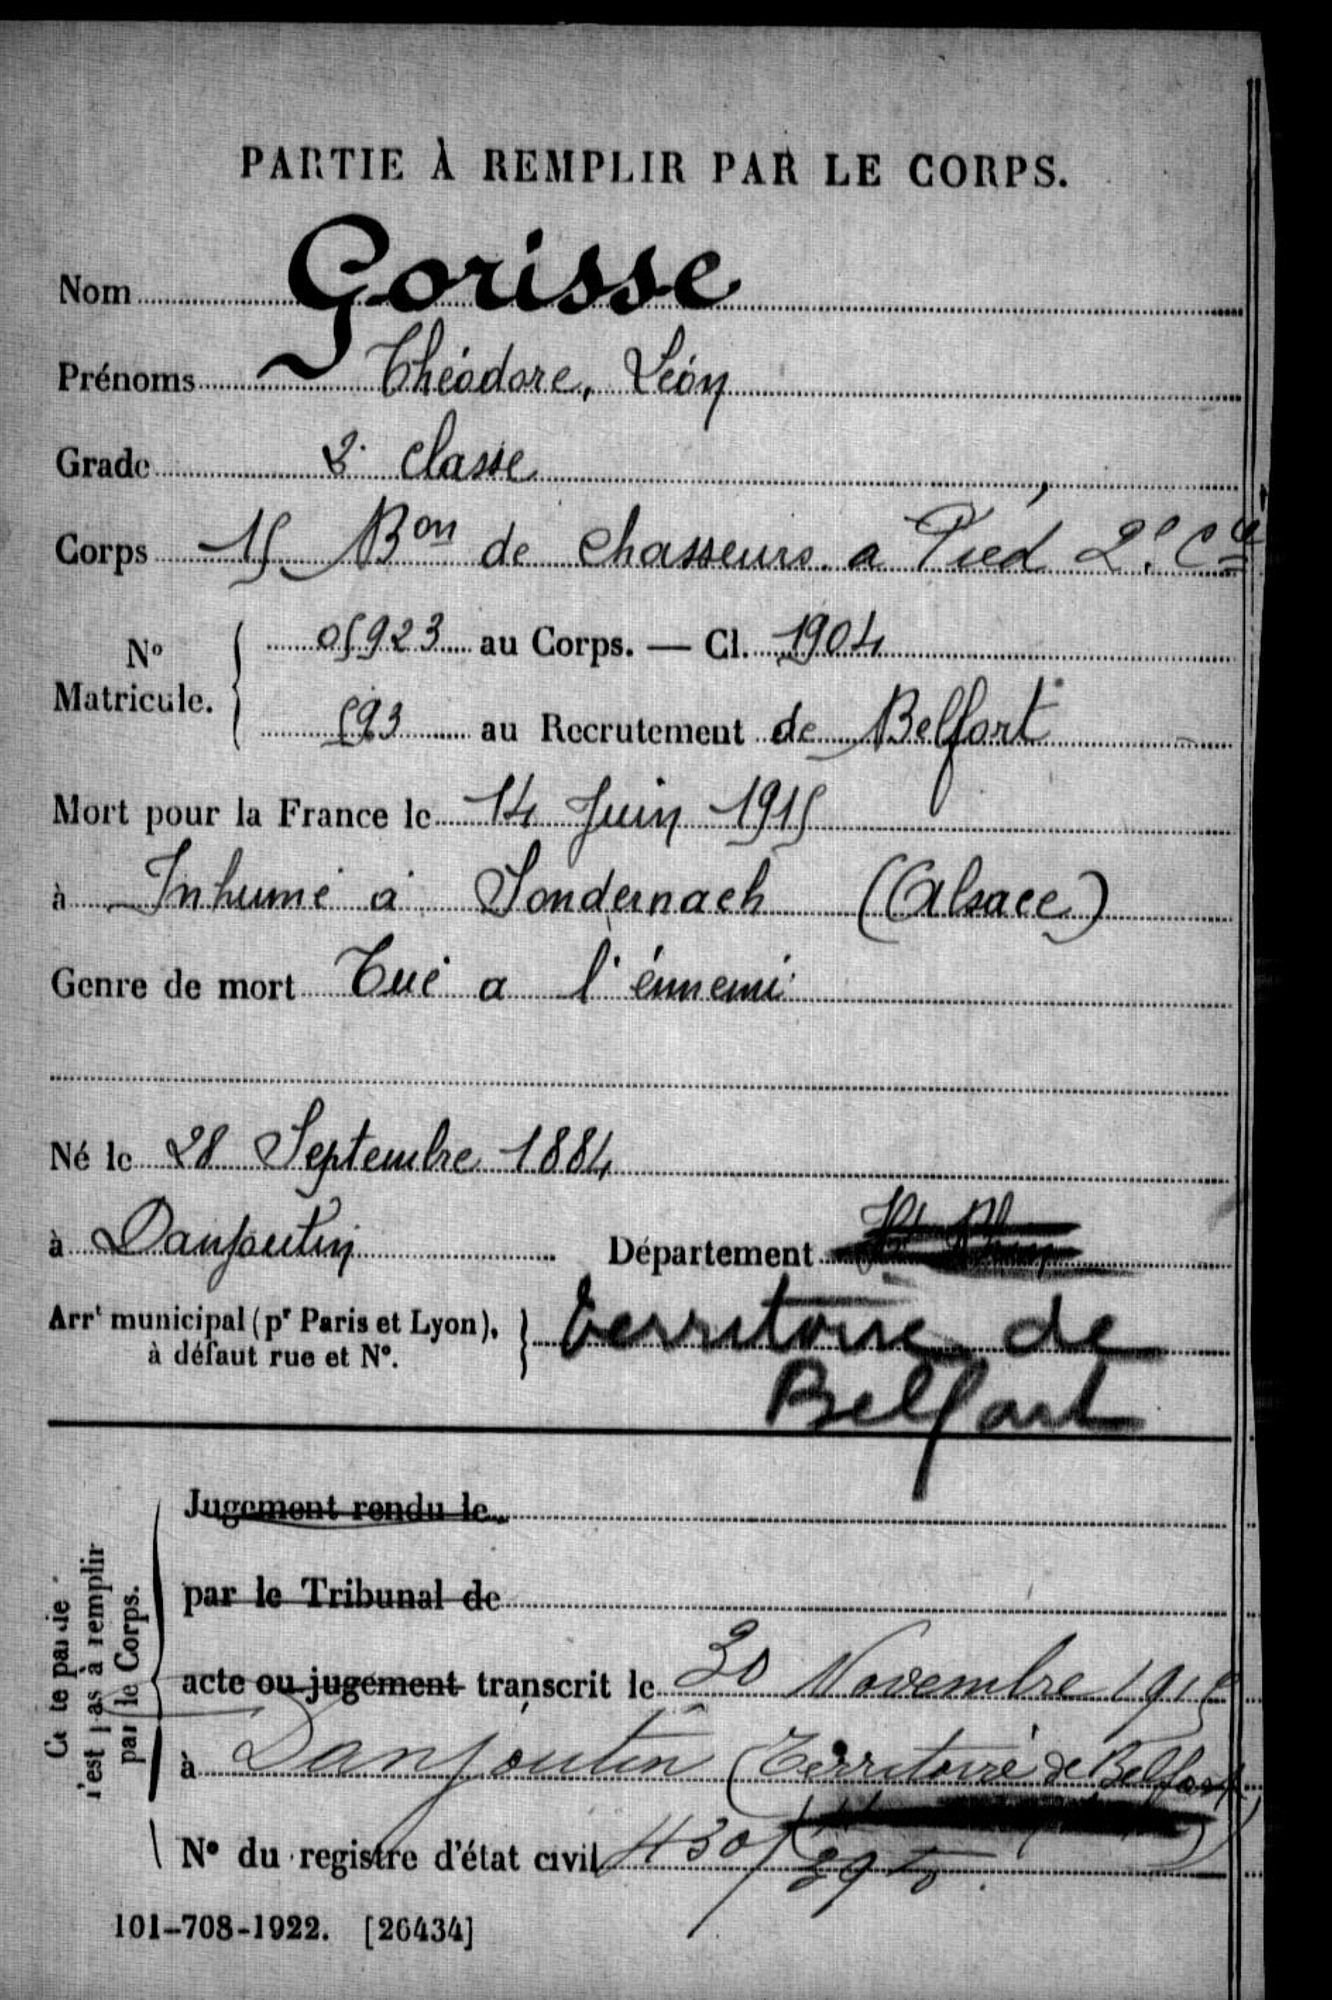 PARTIE À REMPLIR PAR LE CORPS.
Nom Gorisse
Prénoms Théodore, Léon
Grade 2e classe
Corps 15 Bon de chasseurs a Pied 2e Cie
No Matricule. { 05923 au Corps. — Cl. 1904
593 au Recrutement de Belfort
Mort pour la France le 14 Juin 1915
à Inhumé à Sondernach (Alsace)
Genre de mort Tué a l'énnemi
Né le 28 Septembre 1884
à Danjoutin Département
Arrt municipal (pr Paris et Lyon), à défaut rue et No. } territoire de
Belfort
Jugement rendu le
par le Tribunal de
acte ou jugement transcrit le 30 Novembre 1915
à Danjoutin (Territoire de Belfort)
No du registre d'état civil 430/
Cette partie n'est pas à remplir par le Corps.
101-708-1922. [26434]